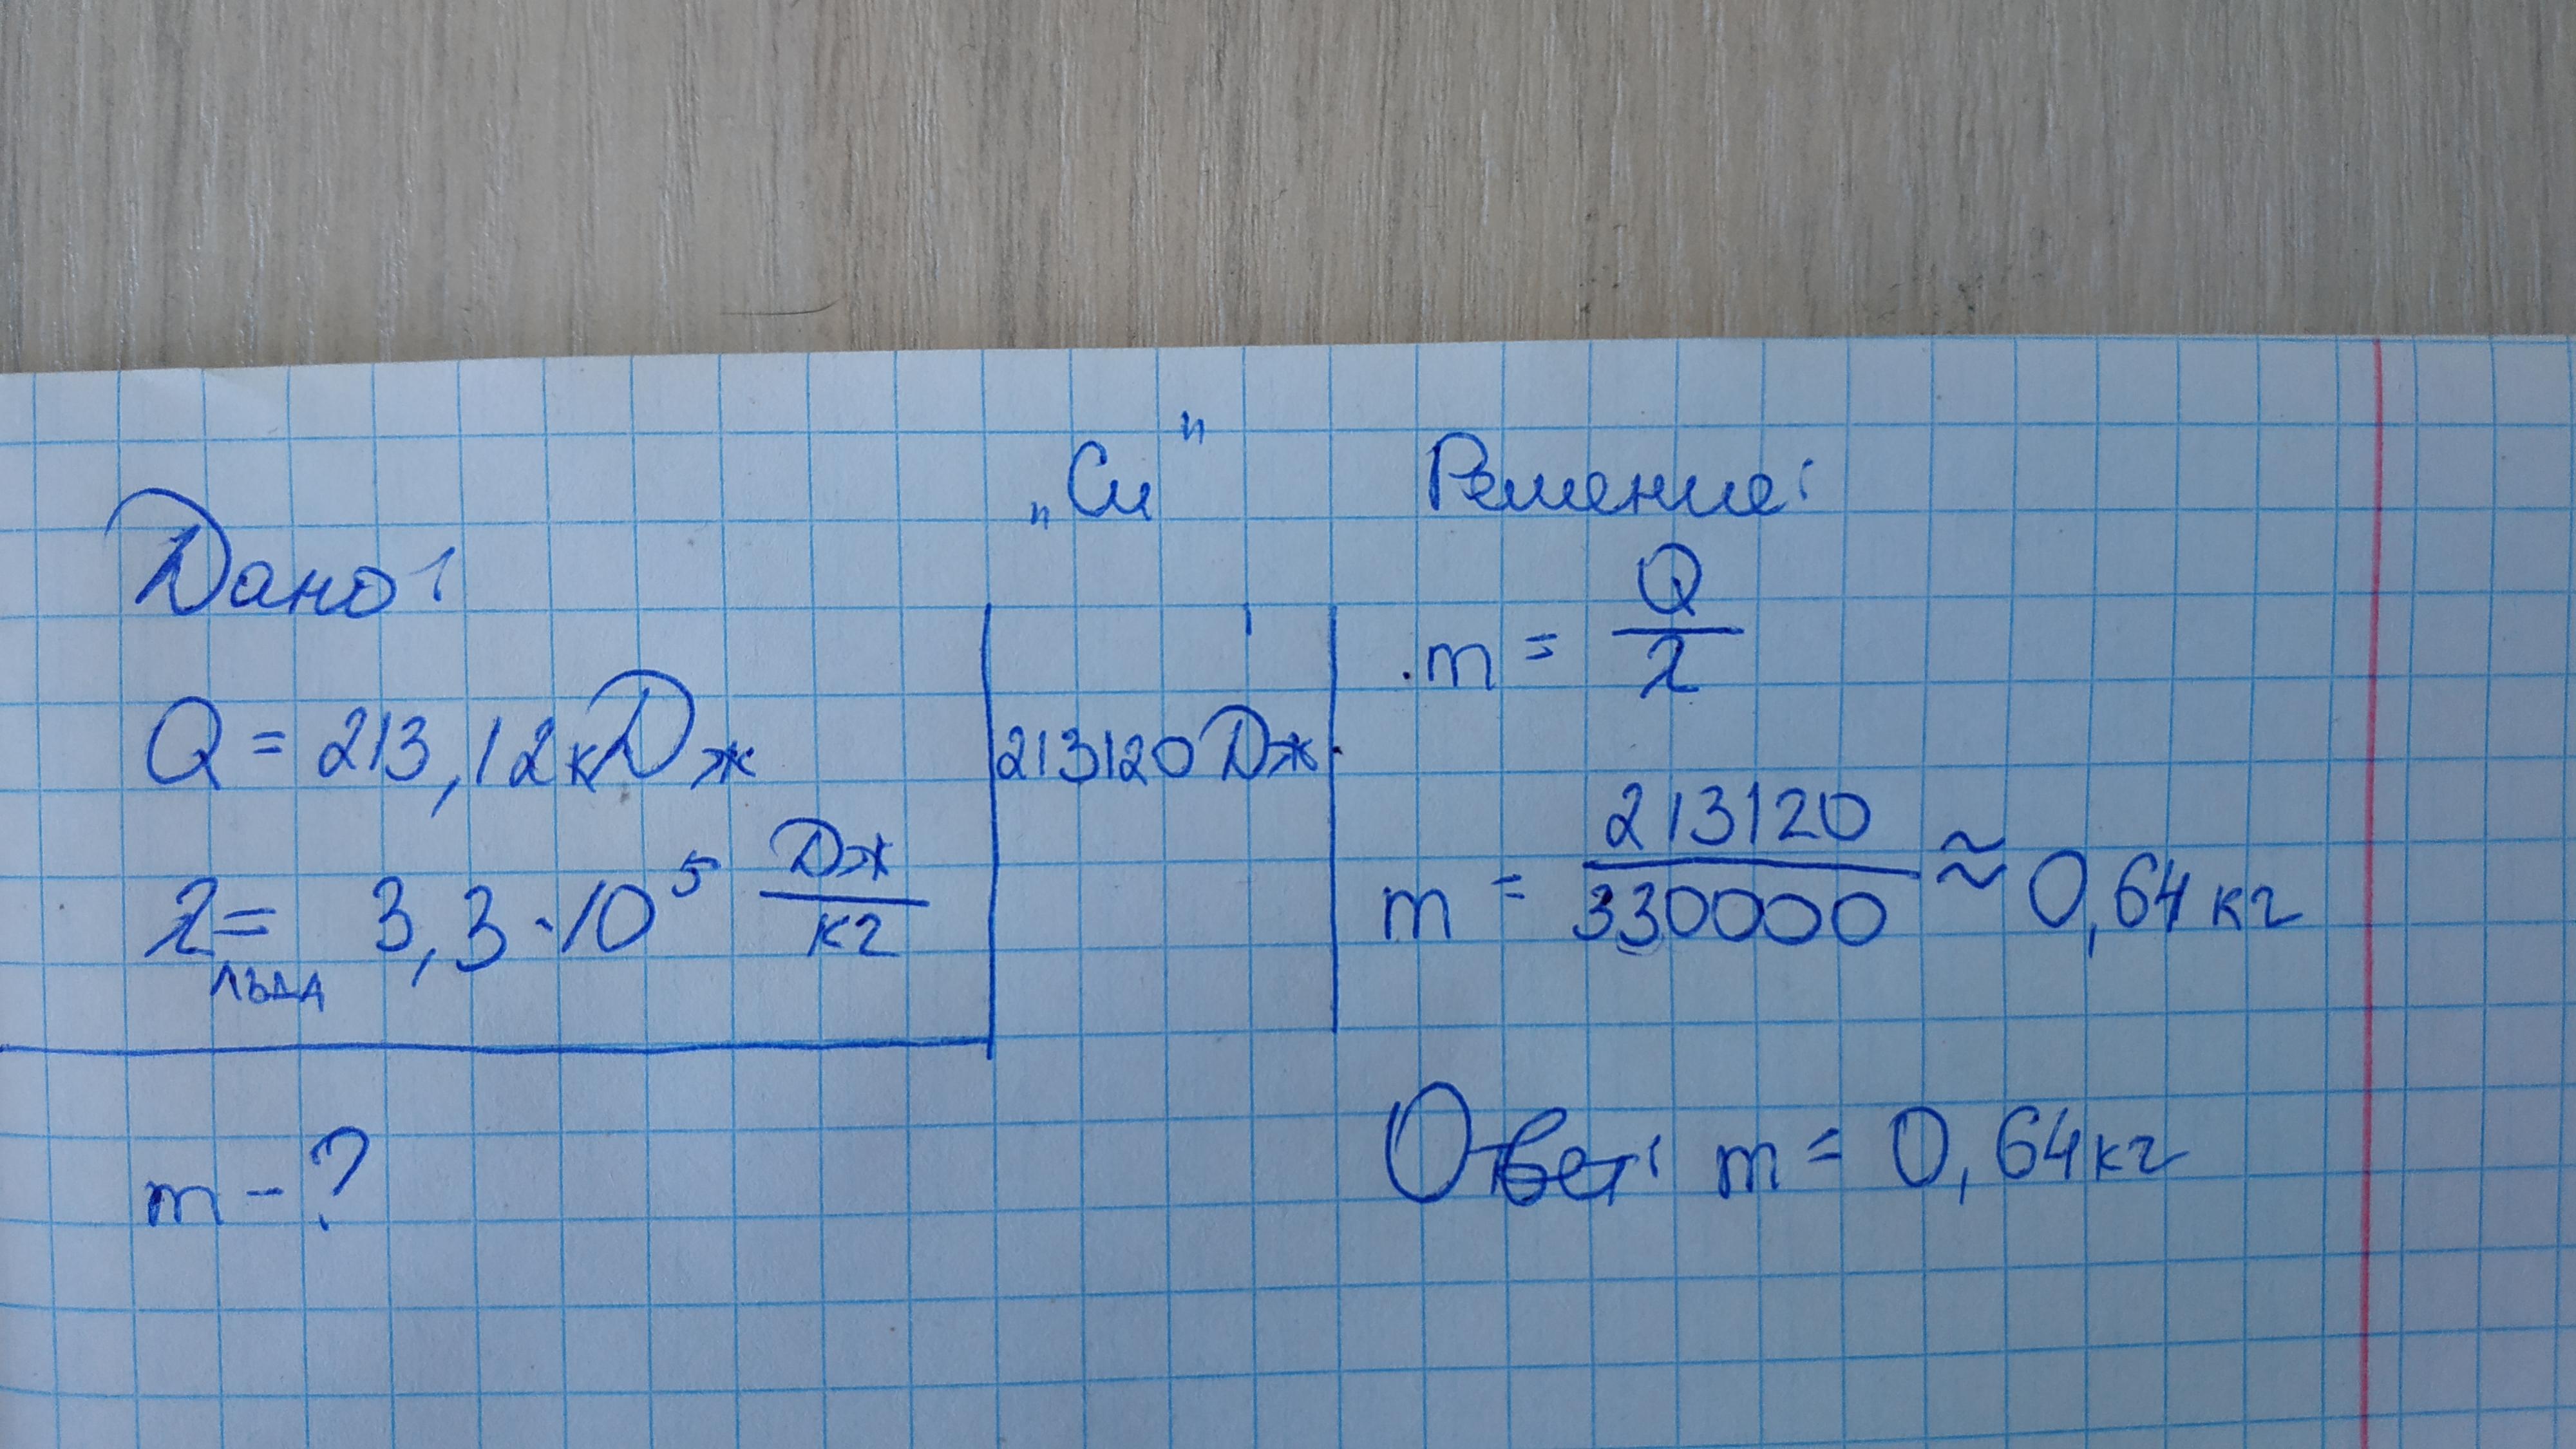 Дано:
Q = 213,12 кДж
λ льда = 3,3 · 10⁵ Дж/кг
m - ?
„Си"
213120 Дж
Решение:
m = Q/λ
m = 213120/330000 ≈ 0,64 кг
Ответ: m = 0,64 кг